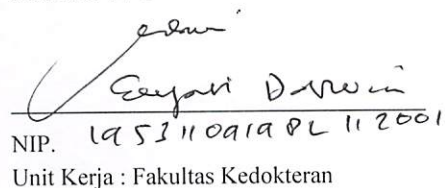 Eryati Darwin
NIP. 195311091982112001
Unit Kerja : Fakultas Kedokteran